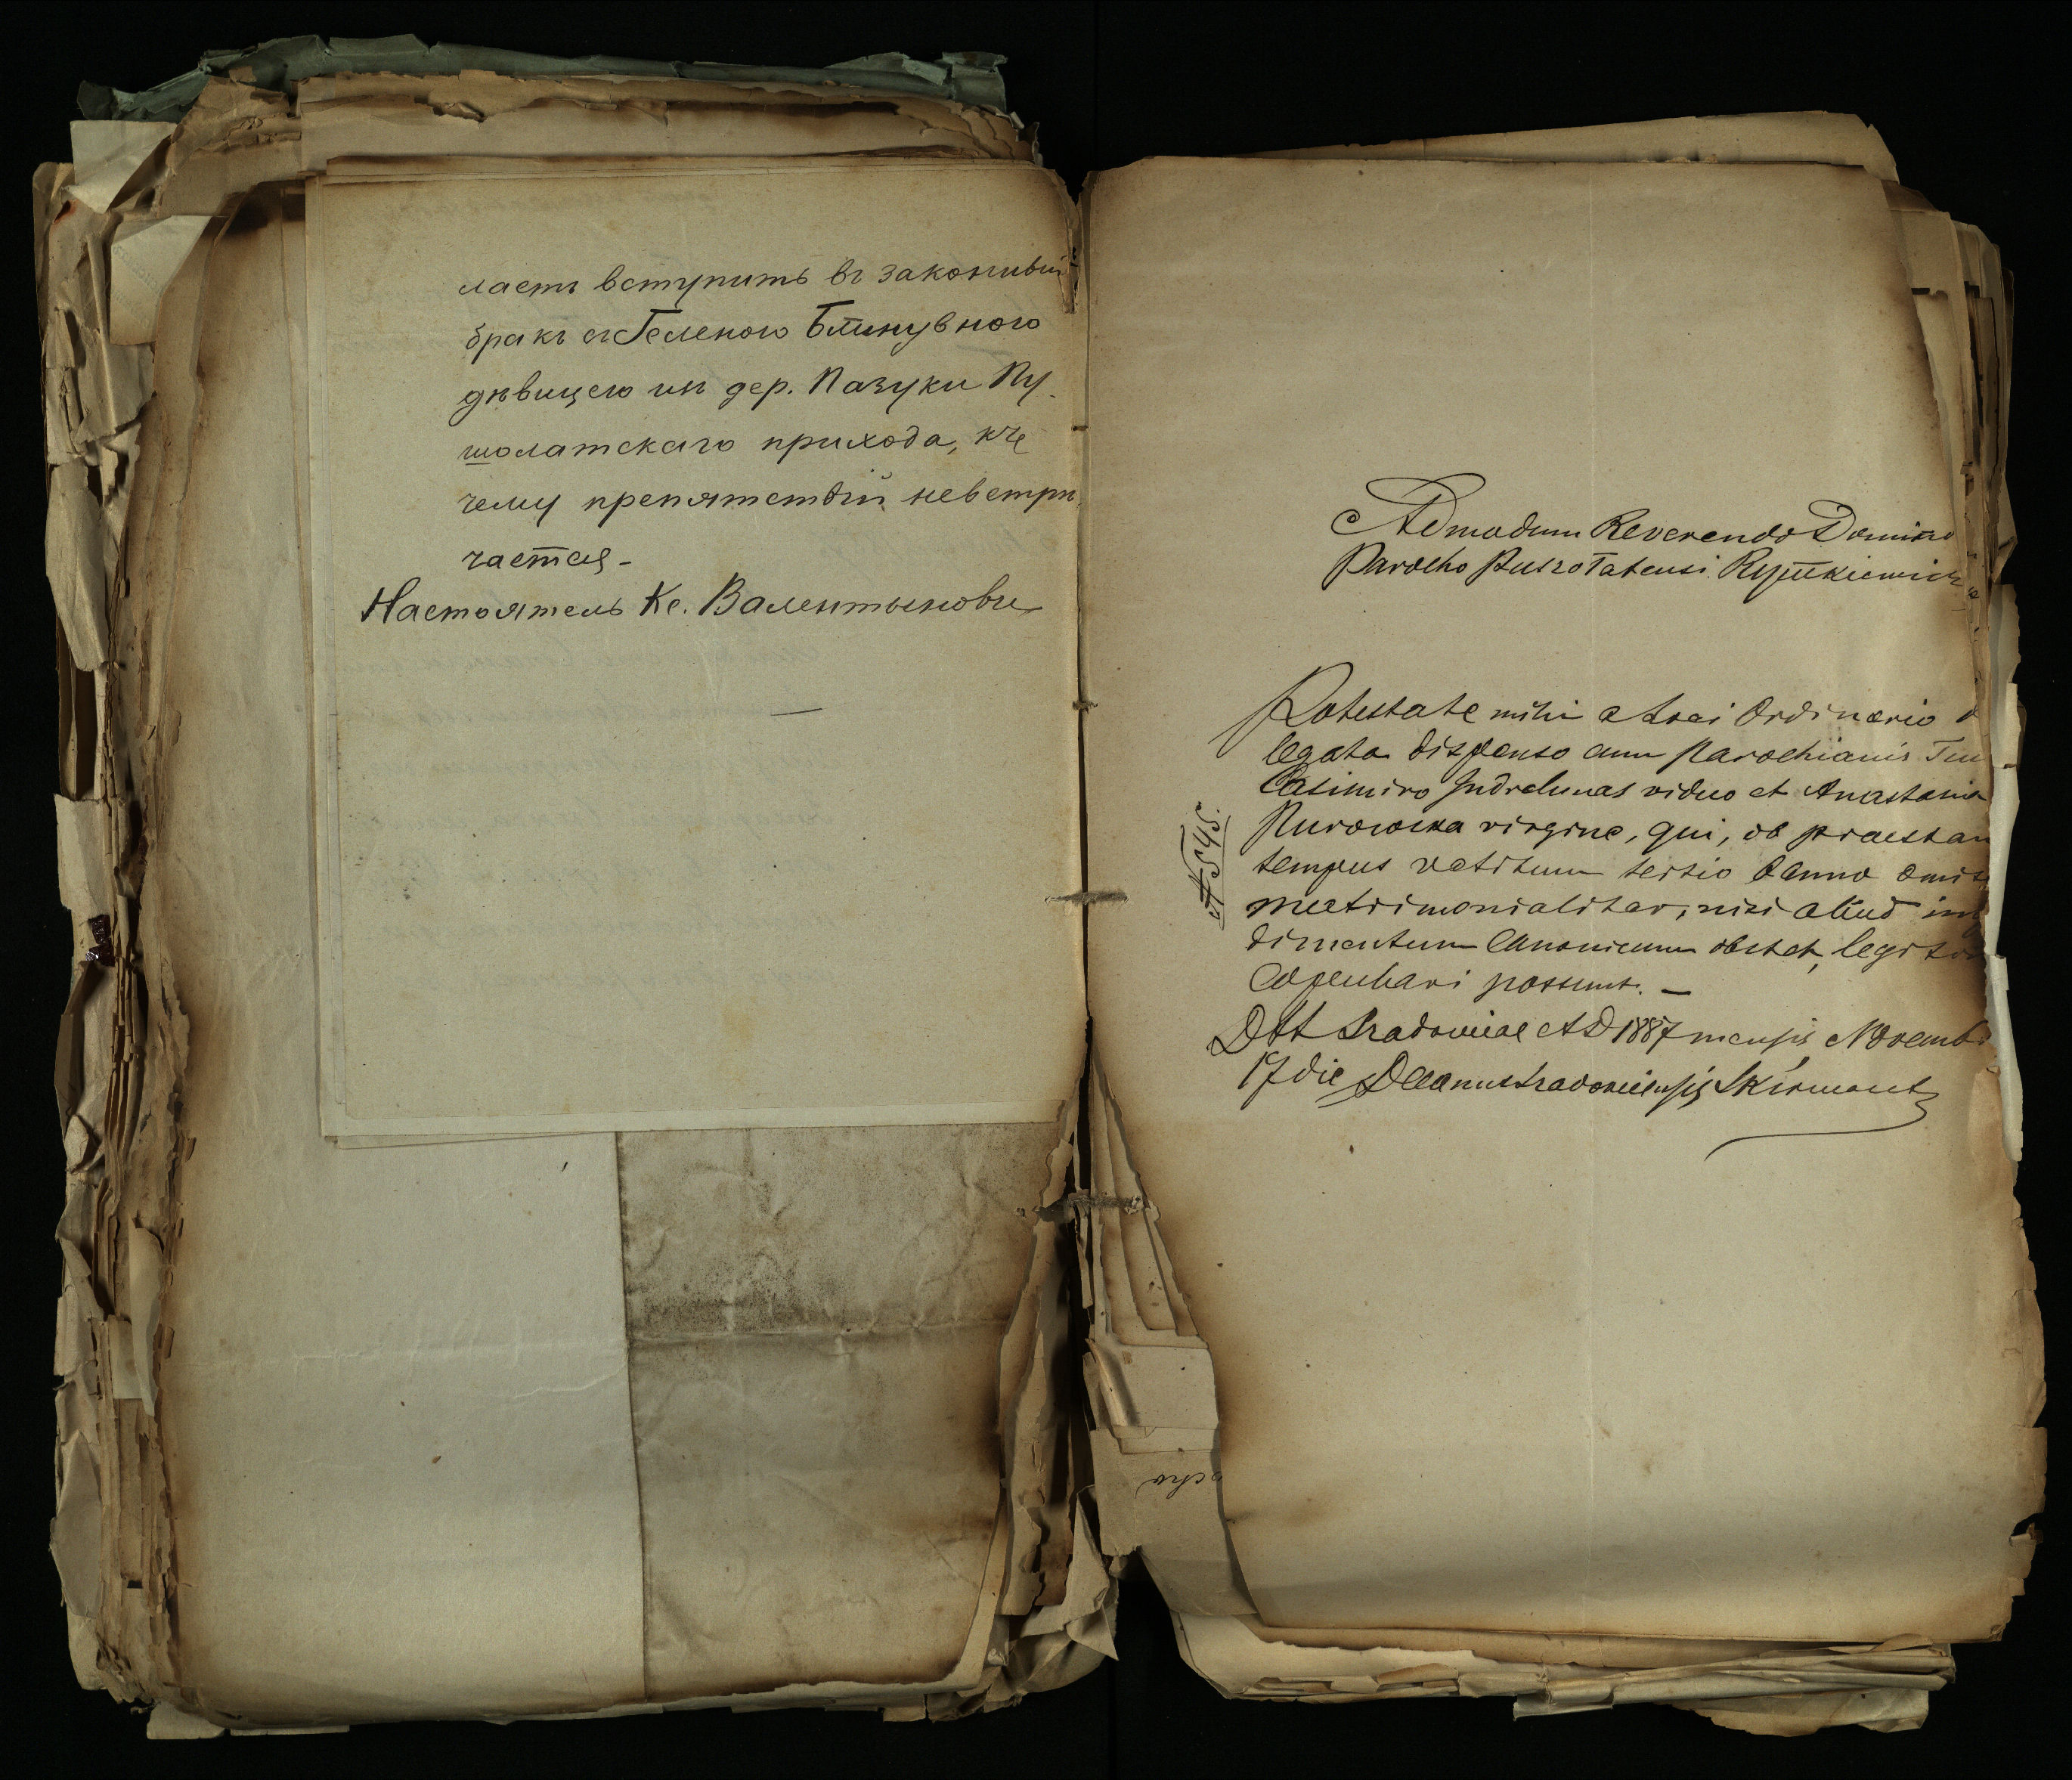 лаетъ вступить въ законный
бракъ съ Геленою Блинувною
дѣвицею изъ дер. Пазуки Пу-
шолатскаго прихода, къ
чему препятствій невстрѣ
чается -
Настоятель Кс. Валентыновичъ
Admodum Reverendo Domino
Parocho Puszołatensi
Potestate mihi a Loci Ordinario de
legata dispenso cum Parochianis Tui
Casimiro viduo et Anastasia
virgine, qui, ob praestan
tempus vetitum tertio banno omis
matrimonialiter, nisi aliud im
dimentum Canonicum obstet, legiti
copulari possunt. -
№ 545.
Dtt Sradoviae AD 1887 mensis Novembr
17 die Decanus Sradoviensis Skirmont
ocho